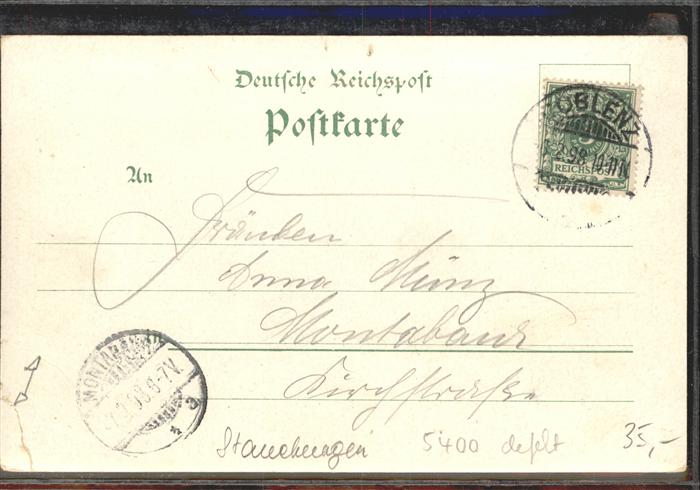 Deutsche Reichspost
Postkarte
COBLENZ
2.98.10-11N.
REICHSPOST
An
Fräulein
Anna Münz
Montabaur
Kirchstraße
MONTABAUR
98 6-7V.
Stauchungen 5400 defekt 35,-